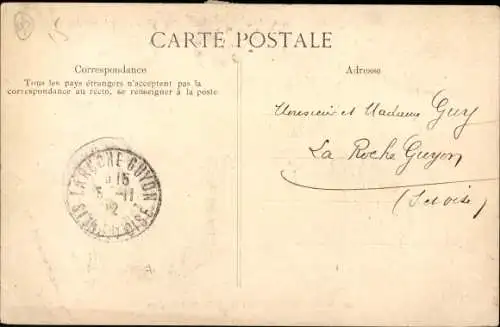 15
CARTE POSTALE
Correspondance
Tous les pays étrangers n'acceptent pas la
correspondance au recto, se renseigner à la poste
Adresse
Monsieur et Madame Guy
La Roche Guyon
(S et oise)
LA ROCHE GUYON
15
5 -11
12
SEINE ET OISE